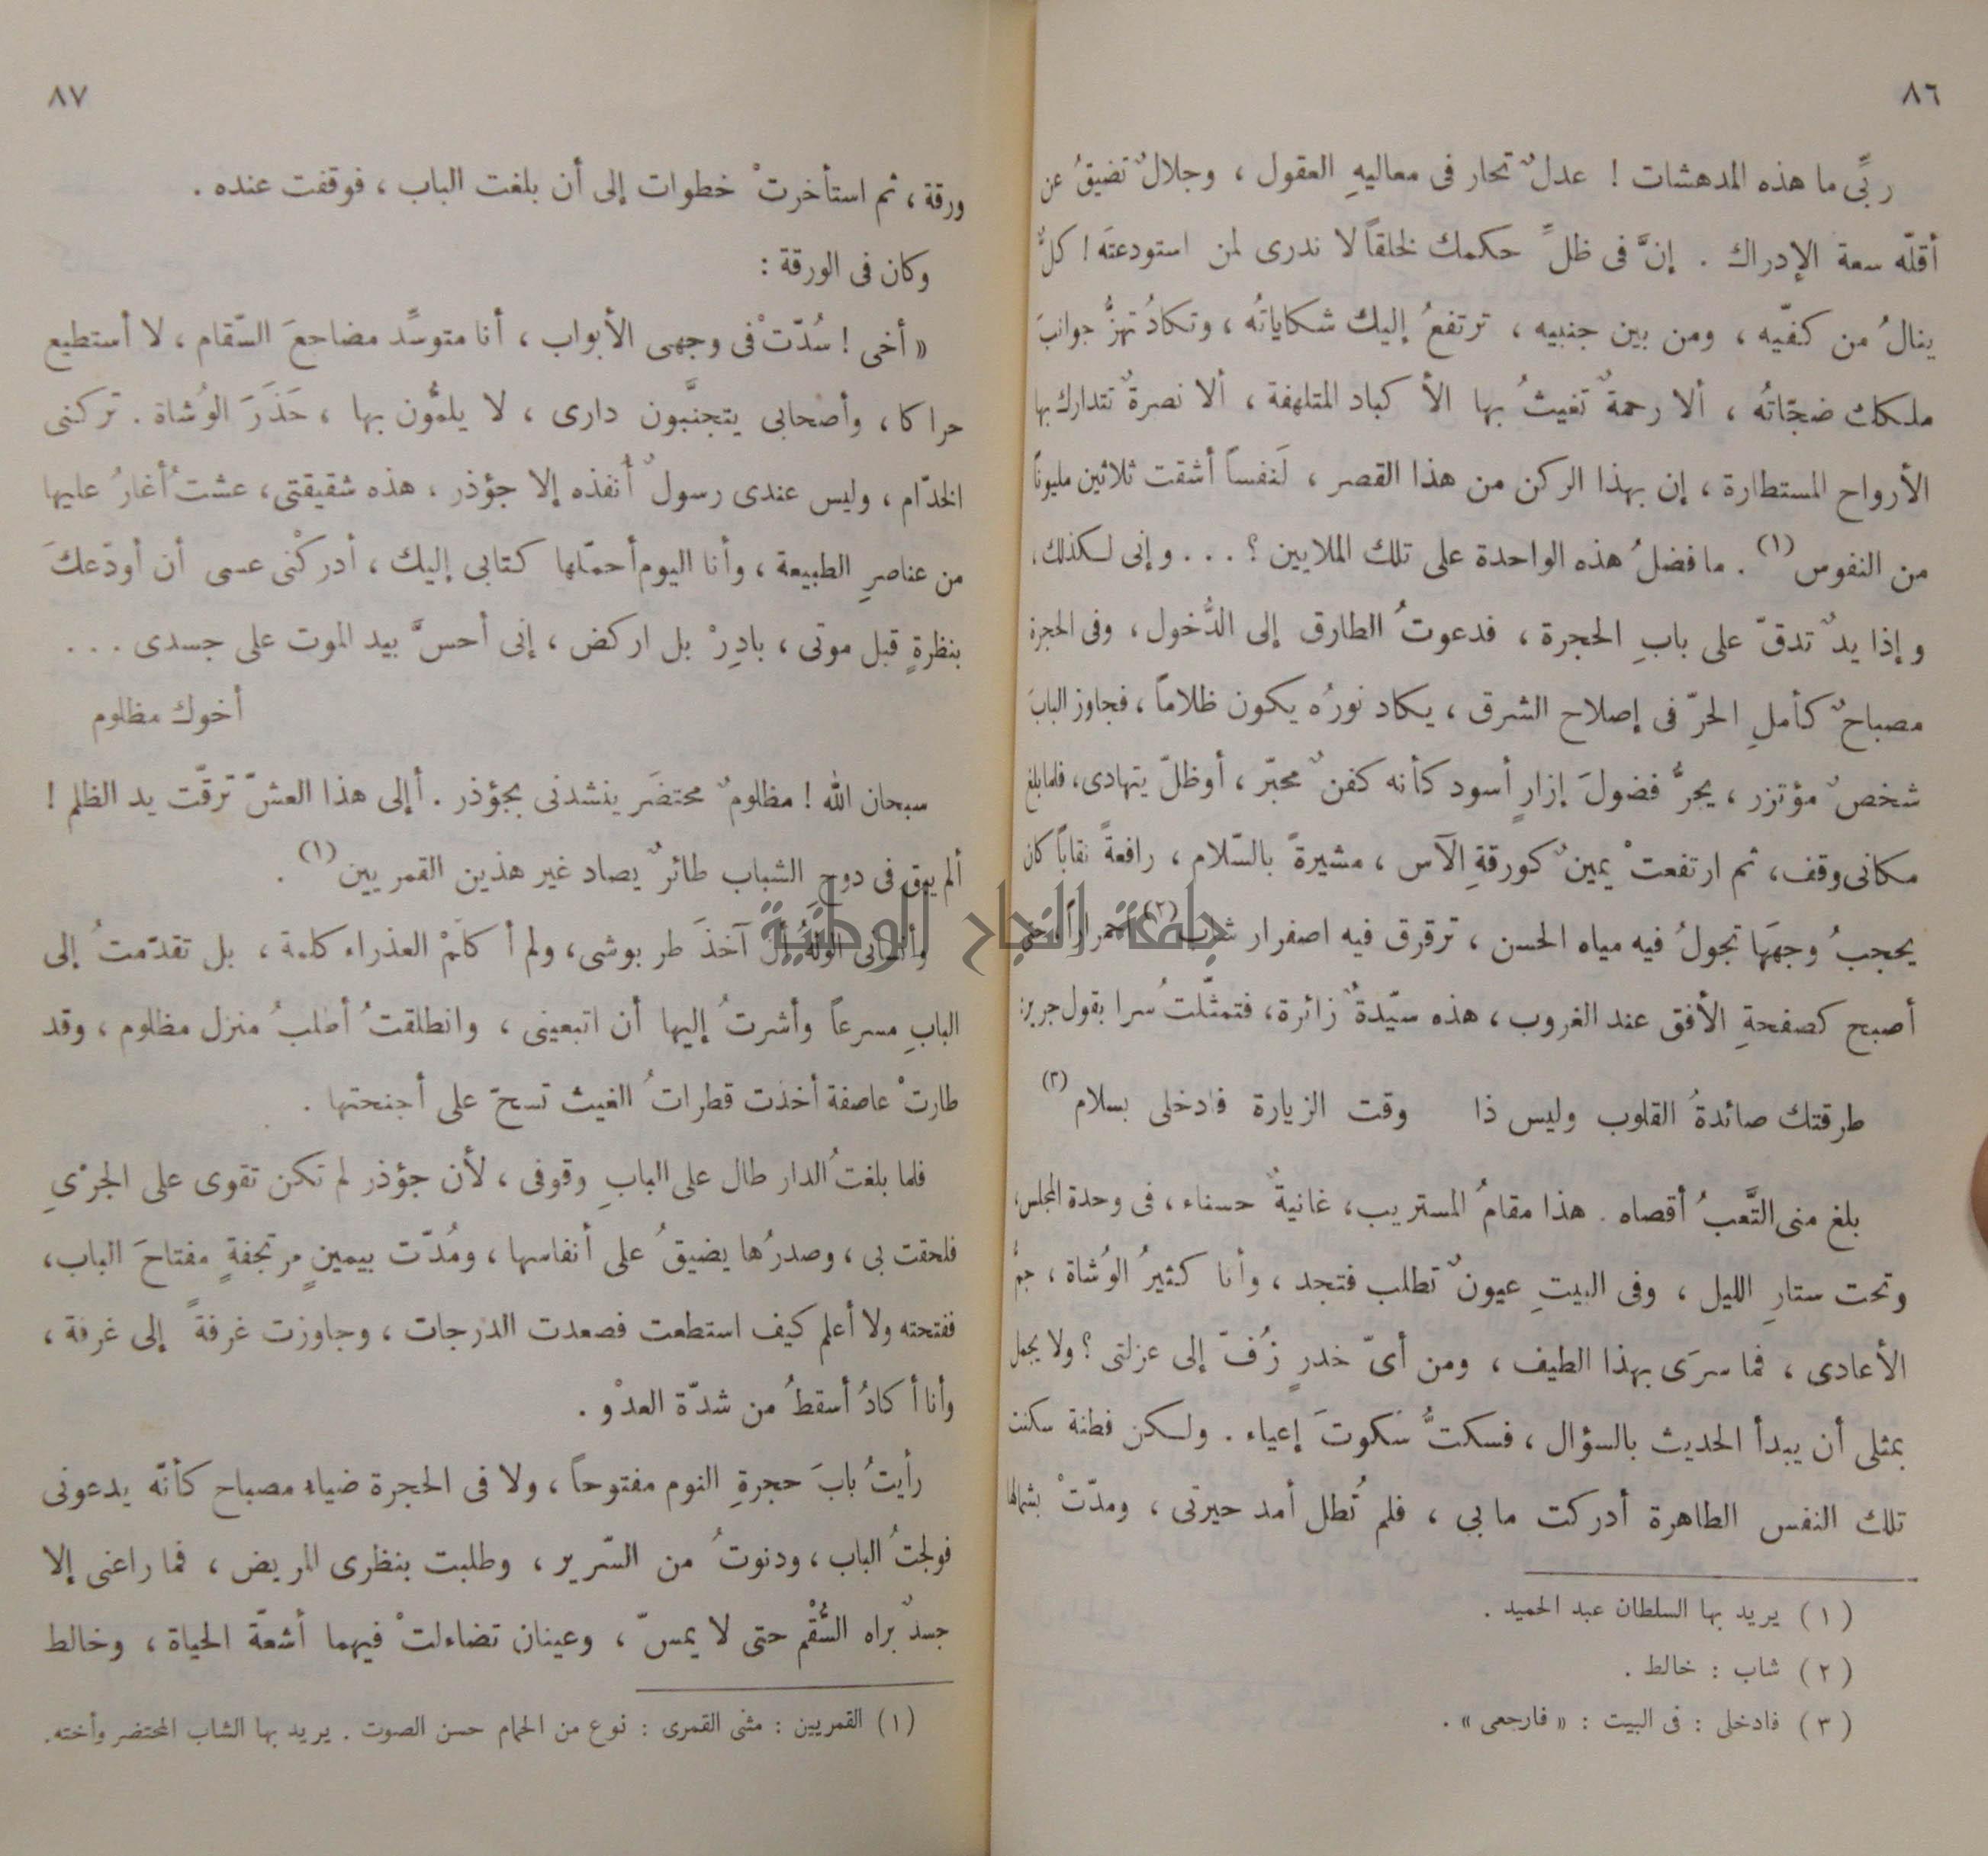 ٨٦
ربِّى ما هذه المدهشات ! عدلٌ تحار فى معاليهِ العقول ، وجلالٌ تضيقُ عن
أقلّه سعة الإدراك . إنَّ فى ظلِّ حكمك لخلقاً لا ندرى لمن استودعتَه ! كلٌّ
ينالُ من كفّيه ، ومن بين جنبيه ، ترتفعُ إليك شكاياتُه ، وتكادُ تهزُّ جوانبَ
ملكك ضجّاتهُ ، ألا رحمةٌ تغيثُ بها الأكباد المتلهفة ، ألا نصرةٌ تتدارك بها
الأرواح المستطارة ، إن بهذا الركن من هذا القصر ، لَنفساً أشقت ثلاثين مليوناً
من النفوس (١) . ما فضلُ هذه الواحدة على تلك الملايين ؟ . . . وإنى لكذلك ،
وإذا يدٌ تدقّ على بابِ الحجرة ، فدعوتُ الطارق إلى الدُّخول ، وفى الحجرة
مصباحٌ كأملِ الحرّ فى إصلاح الشرق ، يكاد نورُه يكون ظلاماً ، فجاوز البابَ
شخصٌ مؤتزر ، يجرُّ فضولَ إزارٍ أسود كأنه كفنٌ محبّر ، أوظلّ يتهادى ، فلما بلغ
مكانى وقف ، ثم ارتفعتْ يمينٌ كورقةِ الآس ، مشيرةً بالسّلام ، رافعةً نقاباً كان
يحجبُ وجهَها تجولُ فيه مياه الحسن ، ترقرق فيه اصفرار شاب (٢) احمراراً ، حتى
أصبح كصفحةِ الأفق عند الغروب ، هذه سيّدةٌ زائرة ، فتمثّلتُ سرا بقول جرير :
طرقتك صائدةُ القلوب وليس ذا وقت الزيارة فادخلى بسلام (٣)
بلغ منى التَّعبُ أقصاه . هذا مقامُ المستريب ، غانيةٌ حسناء ، فى وحدة المجلس ،
وتحت ستارِ الليل ، وفى البيتِ عيونٌ تطلب فتجد ، وأنا كثيرُ الوُشاة ، جمُّ
الأعادى ، فما سرَى بهذا الطيف ، ومن أىّ خدرٍ زُفّ إلى عزلتى ؟ ولا يجمل
بمثلى أن يبدأ الحديث بالسؤال ، فسكتُّ سُكوتَ إعياء . ولكن فطنة سكنت
تلك النفس الطاهرة أدركت ما بى ، فلم تُطل أمد حيرتى ، ومدّتْ بشمالها
(١) يريد بها السلطان عبد الحميد .
(٢) شاب : خالط .
(٣) فادخلى : فى البيت : « فارجعى » .
٨٧
ورقة ، ثم استأخرتْ خطوات إلى أن بلغت الباب ، فوقفت عنده .
وكان فى الورقة :
« أخى ! سُدّتْ فى وجهى الأبواب ، أنا متوسِّد مضاجعَ السّقام ، لا أستطيع
حراكا ، وأصحابى يتجنَّبون دارى ، لا يلمُّون بها ، حَذَرَ الوُشاة . تركنى
الخدّام ، وليس عندى رسولٌ أُنفذه إلا جؤذر ، هذه شقيقتى ، عشتُ أغارُ عليها
من عناصرِ الطبيعة ، وأنا اليوم أحمّلها كتابى إليك ، أدركْنى عسى أن أودّعكَ
بنظرةٍ قبل موتى ، بادِرْ بل اركض ، إنى أحسّ بيد الموت على جسدى . . .
أخوك مظلوم
سبحان الله ! مظلومٌ محتضَر ينشدنى بجؤذر . أإلى هذا العشّ ترقّت يد الظلم !
ألم يبق فى دوحِ الشباب طائرٌ يصاد غير هذين القمريين (١) .
وأنسانى الولَهُ أن آخذَ طربوشى ، ولم أكلّمْ العذراء كلمة ، بل تقدّمتُ إلى
البابِ مسرعاً وأشرتُ إليها أن اتبعينى ، وانطلقتُ أطلبُ منزل مظلوم ، وقد
طارتْ عاصفة أخذت قطراتُ الغيث تسحّ على أجنحتها .
فلما بلغتُ الدار طال على البابِ وقوفى ، لأن جؤذر لم تكن تقوى على الجرْىِ
فلحقت بى ، وصدرُها يضيقُ على أنفاسها ، ومُدّت بيمينٍ مرتجفةٍ مفتاحَ الباب ،
ففتحته ولا أعلم كيف استطعت فصعدت الدرجات ، وجاوزت غرفةً إلى غرفة ،
وأنا أكادُ أسقطُ من شدّة العدْو .
رأيتُ بابَ حجرةِ النوم مفتوحاً ، ولا فى الحجرة ضياء مصباح كأنّه يدعونى
فولجتُ الباب ، ودنوتُ من السّرير ، وطلبت بنظرى المريض ، فما راعنى إلا
جسدٌ براه السُّقْم حتى لا يمسّ ، وعينان تضاءلتْ فيهما أشعّة الحياة ، وخالط
(١) القمريين : مثنى القمرى : نوع من الحمام حسن الصوت . يريد بها الشاب المحتضر وأخته .
جامعة النجاح الوطنية